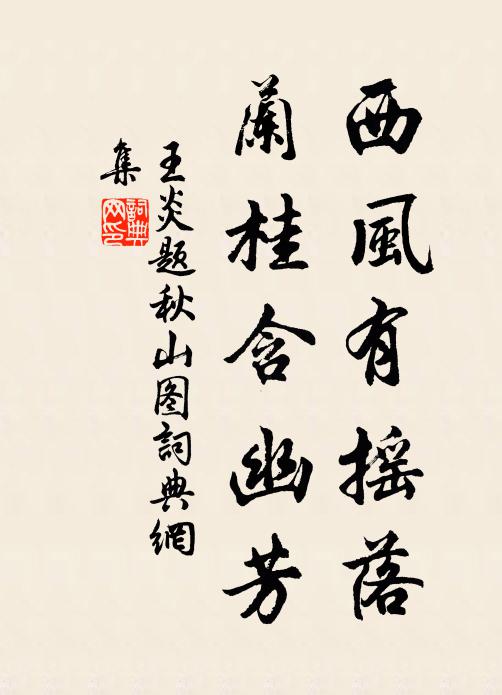 西風有摇落
蘭桂含幽芳
王炎题秋山图詞典網
集
詞典
网印